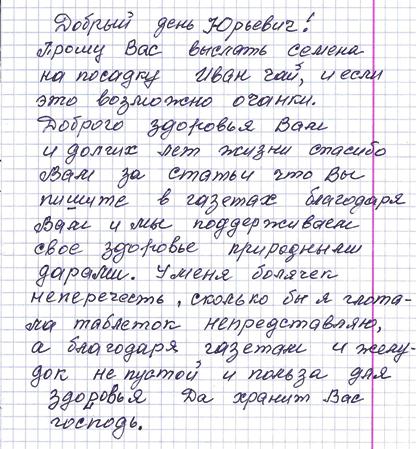 Добрый день Юрьевич!
Прошу Вас выслать семена
на посадку Иван чай, и если
это возможно очанки.
Доброго здоровья Вам
и долгих лет жизни спасибо
Вам за статьи что Вы
пишите в газетах благодаря
Вам и мы поддерживаем
свое здоровье природными
дарами. У меня болячек
неперечесть, сколько бы я глота-
ла таблеток непредставляю,
а благодаря газетам и желу-
док не пустой и польза для
здоровья Да хранит Вас
господь.